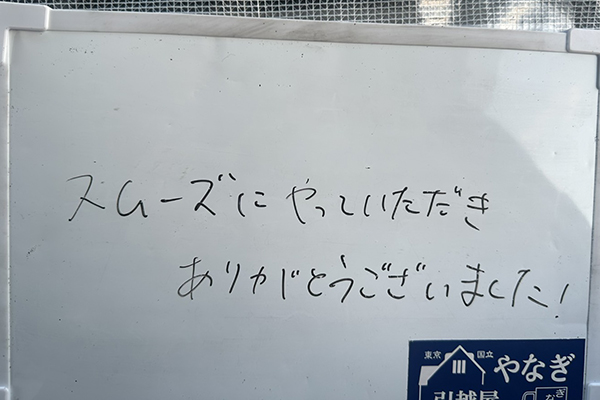 スムーズにやっていただき
ありがとうございました!
東京 国立 やなぎ
引越屋